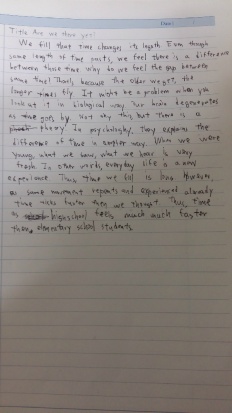 Title Are we there yet?
We fill that time changes its length Even though
same length of time exists, we feel there is a difference
between those time. Why do we feel the gap between
same time? That's because the older we get, the
longer times fly. It might be a problem when you
look at it in biological way. Our brain degenerates
as time goes by. Not only this but there is a
theory. In psychology, They explains the
difference of time in simpler way. When we were
young, what we saw, what we hear is very
fresh. In other words, everyday life is a new
experience. Thus time we fill is long. However,
as same movement repeats and experienced already
time ticks faster then we thought. Thus, time
as highschool feels much much faster
then elementary school students.